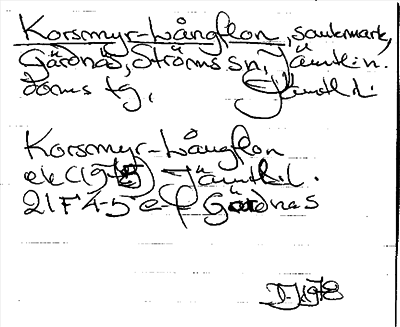 Korsmyr-Långflon, sankmark,
Gärdnäs, Ströms sn, Jämtlin.
doms tg, Jämtl l.
Korsmyr-Långflon
ek (1975) Jämtl l.
21F 4-5 e-f Gärdnäs
1978